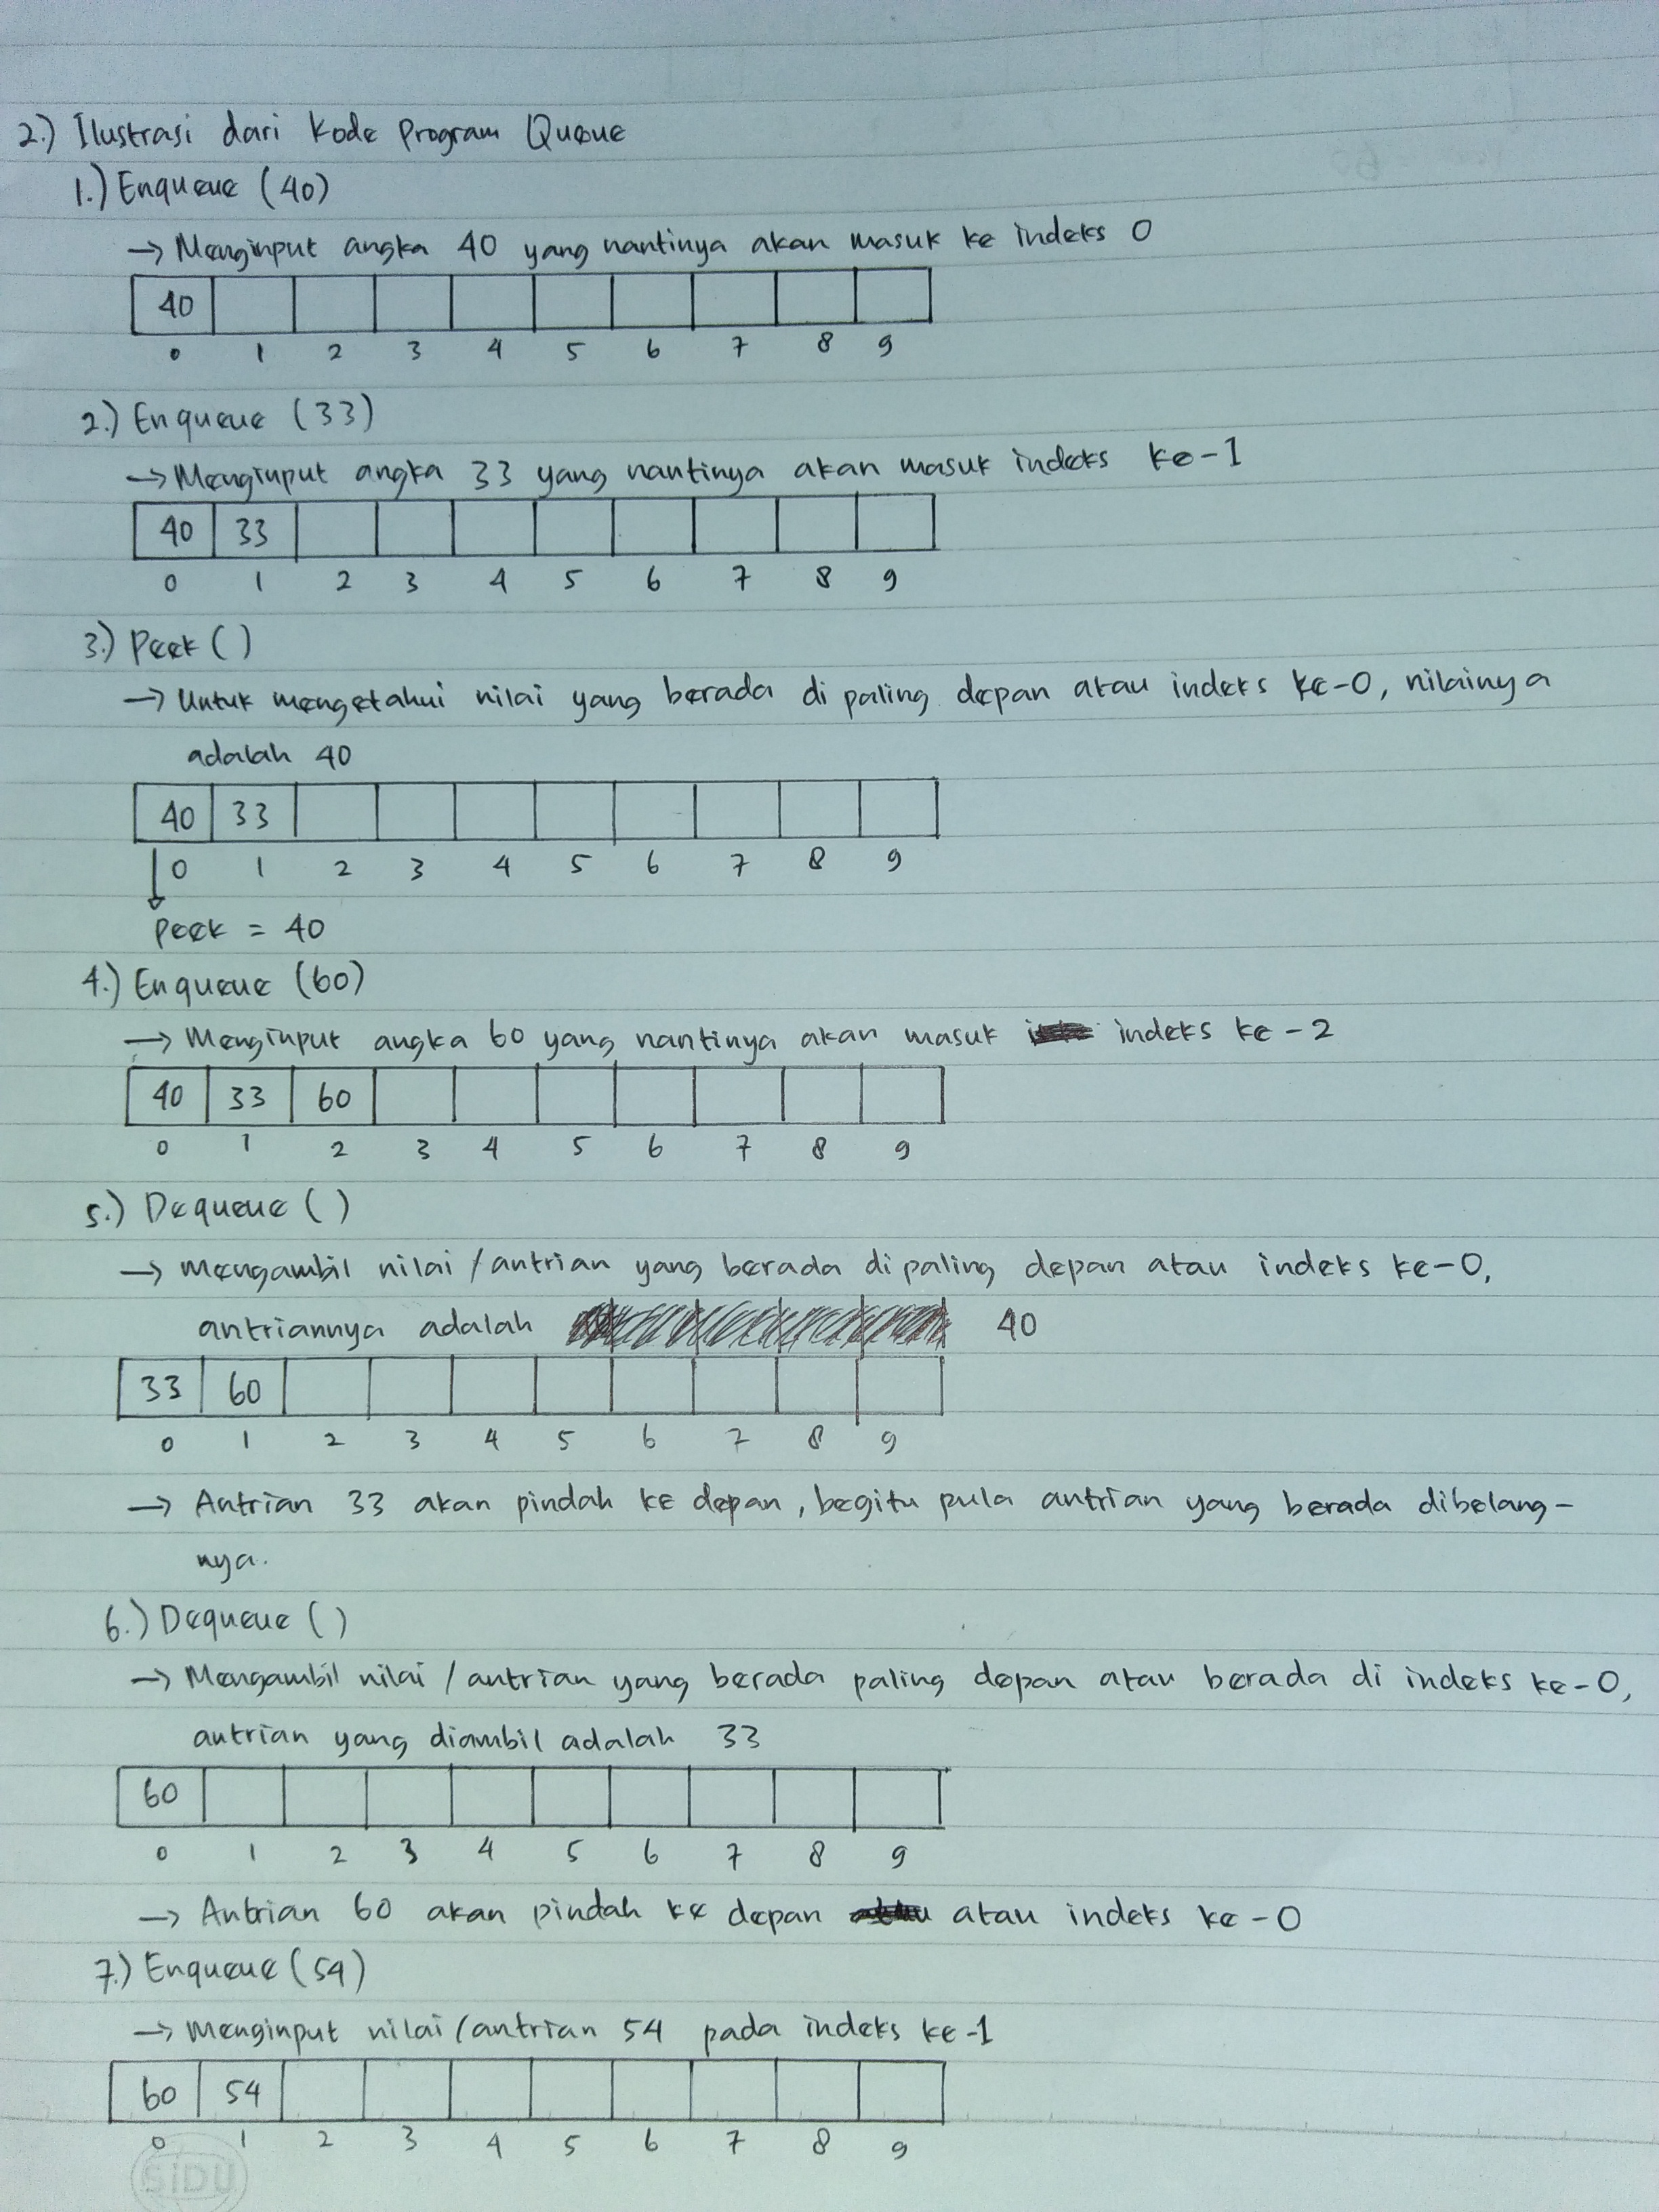 2.) Ilustrasi dari kode program Queue
1.) Enqueue (40)
→ Menginput angka 40 yang nantinya akan masuk ke indeks 0
40
0 1 2 3 4 5 6 7 8 9
2.) Enqueue (33)
→ Menginput angka 33 yang nantinya akan masuk indeks ke-1
40 33
0 1 2 3 4 5 6 7 8 9
3.) Peek ( )
→ Untuk mengetahui nilai yang berada di paling depan atau indeks ke-0, nilainya
adalah 40
40 33
0 1 2 3 4 5 6 7 8 9
Peek = 40
4.) Enqueue (60)
→ Menginput angka 60 yang nantinya akan masuk indeks ke-2
40 33 60
0 1 2 3 4 5 6 7 8 9
5.) Dequeue ( )
→ Mengambil nilai / antrian yang berada di paling depan atau indeks ke-0,
antriannya adalah 40
33 60
0 1 2 3 4 5 6 7 8 9
→ Antrian 33 akan pindah ke depan, begitu pula antrian yang berada dibelang-
nya.
6.) Dequeue ( )
→ Mengambil nilai / antrian yang berada paling depan atau berada di indeks ke-0,
antrian yang diambil adalah 33
60
0 1 2 3 4 5 6 7 8 9
→ Antrian 60 akan pindah ke depan atau indeks ke-0
7.) Enqueue (54)
→ Menginput nilai / antrian 54 pada indeks ke-1
60 54
0 1 2 3 4 5 6 7 8 9
SiDU